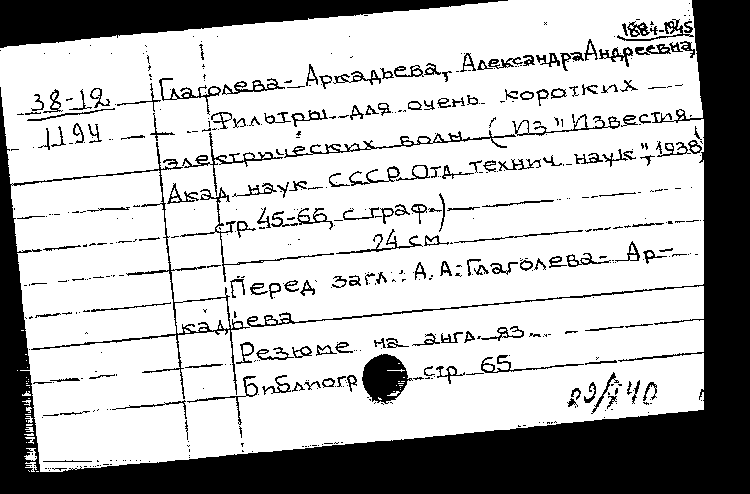 1884-1945
38-12
1194
Глаголева-Аркадьева, Александра Андреевна,
Фильтры для очень коротких
электрических волн. (Из "Известия
Акад. наук СССР. Отд. технич. наук", 1938,
стр. 45-66, с граф.)
24 см
Перед загл.: А. А. Глаголева-Ар-
кадьева
Резюме на англ. яз.
Библиогр стр. 65